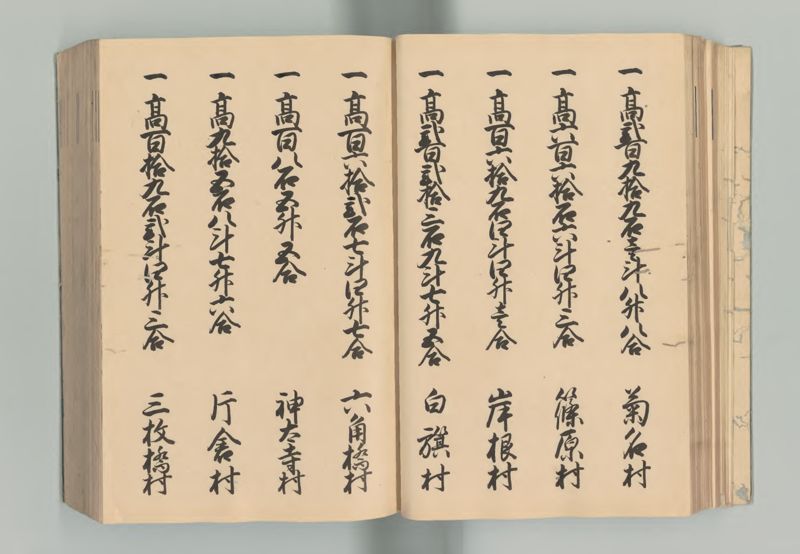 一高弐百九拾九石壱斗八升八合 菊名村
一高六百六拾石六斗四升三合 篠原村
一高百六拾九石四斗四升壱合 岸根村
一高弐百弐拾三石九斗七升五合 白旗村
一高百六拾弐石七斗四升七合 六角橋村
一高百八石五升五合 神大寺村
一高九拾五石八斗七升六合 片倉村
一高百拾九石弐斗四升三合 三枚橋村